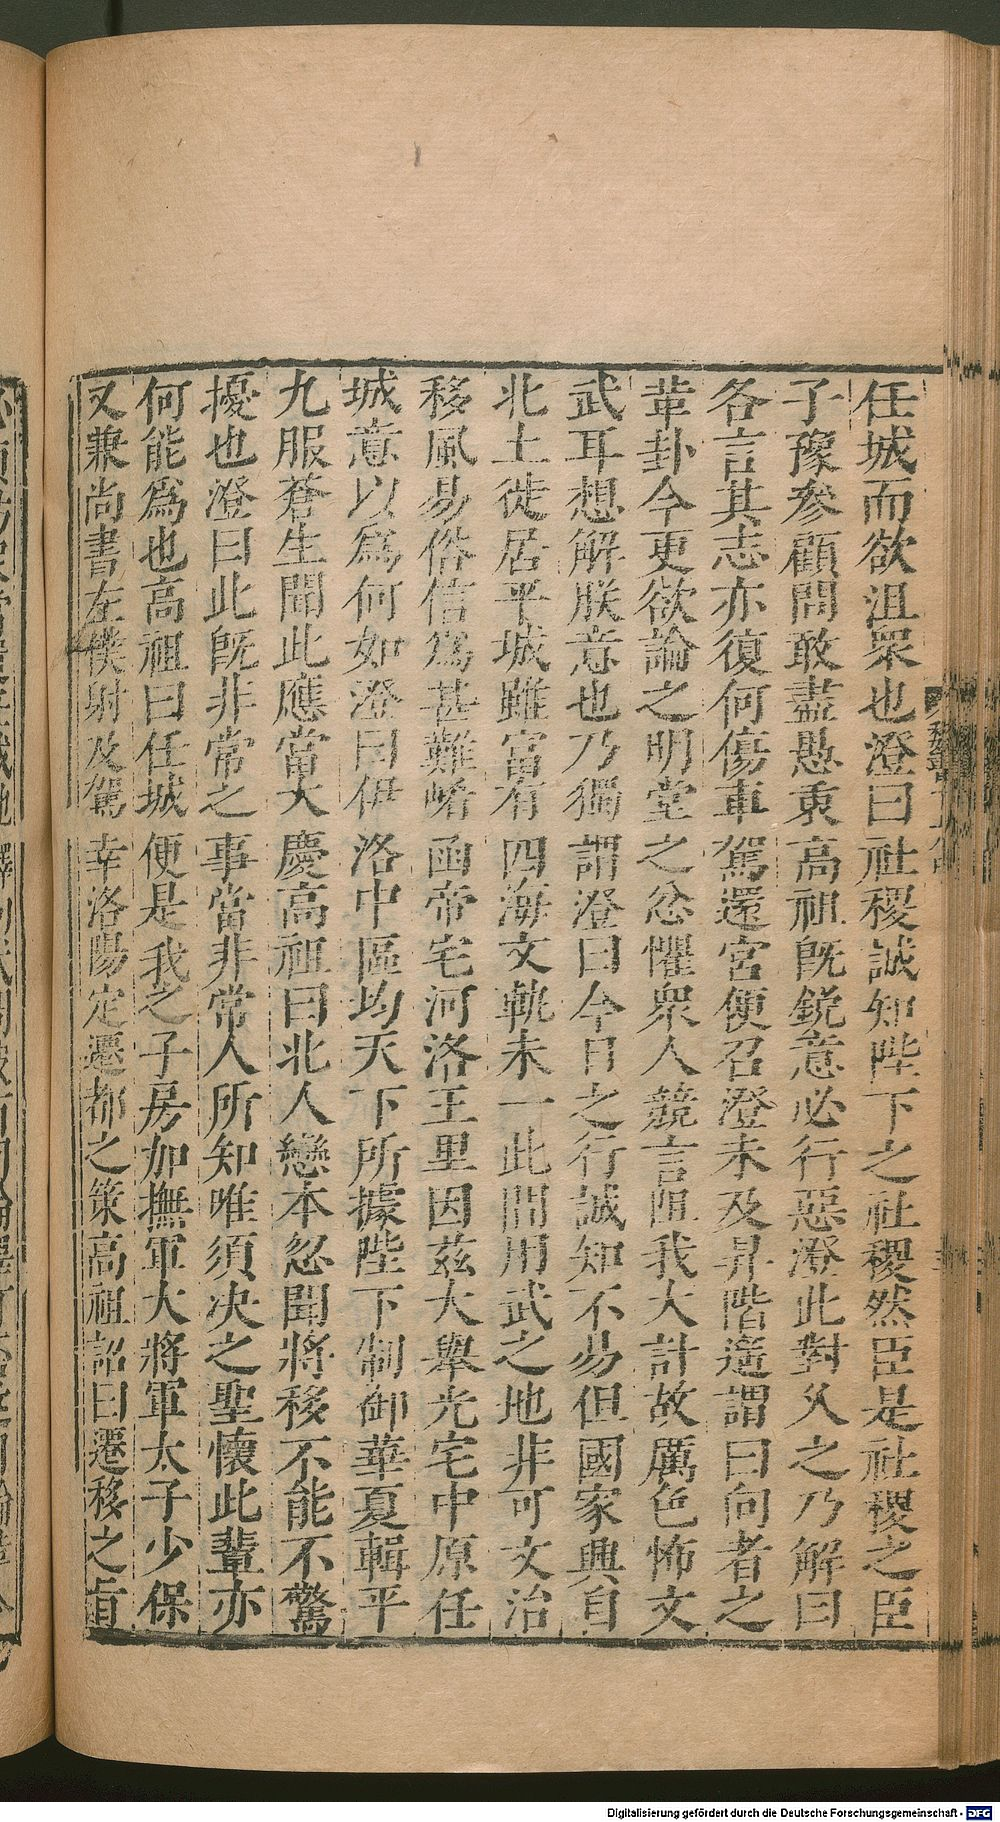 任城而欲沮眾也澄曰社稷誠知陛下之社稷然臣是社稷之臣
子豫參顧問敢盡愚衷高祖既銳意必行惡澄此對久之乃解曰
各言其志亦復何傷車駕還宮便召澄未及昇階遙謂曰向者之
革卦今更欲論之明堂之忿懼眾人競言阻我大計故厲色怖文
武耳想解朕意也乃獨謂澄曰今日之行誠知不易但國家興自
北土徙居平城雖富有四海文軌未一此間用武之地非可文治
移風易俗信為甚難崤函帝宅河洛王里因茲大舉光宅中原任
城意以為何如澄曰伊洛中區均天下所據陛下制御華夏輯平
九服蒼生聞此應當大慶高祖曰北人戀本忽聞將移不能不驚
擾也澄曰此既非常之事當非常人所知唯須決之聖懷此輩亦
何能為也高祖曰任城便是我之子房加撫軍大將軍太子少保
又兼尚書左僕射及駕幸洛陽定遷都之策高祖詔曰遷移之旨
Digitalisierung gefördert durch die Deutsche Forschungsgemeinschaft - DFG